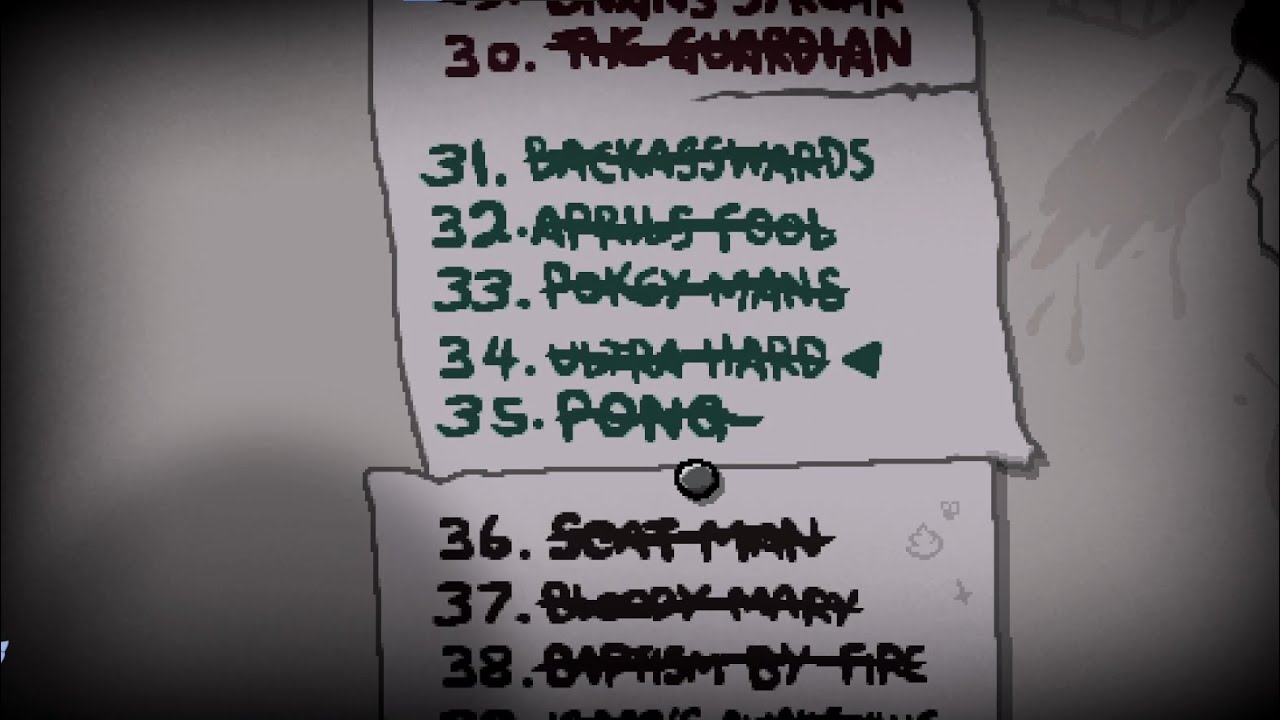 30. THE GUARDIAN
31. BACKASSWARDS
32. APRILS FOOL
33. POKEY MANS
34. ULTRA HARD
35. PONG
36. SCAT MAN
37. BLOODY MARY
38. BAPTISM BY FIRE